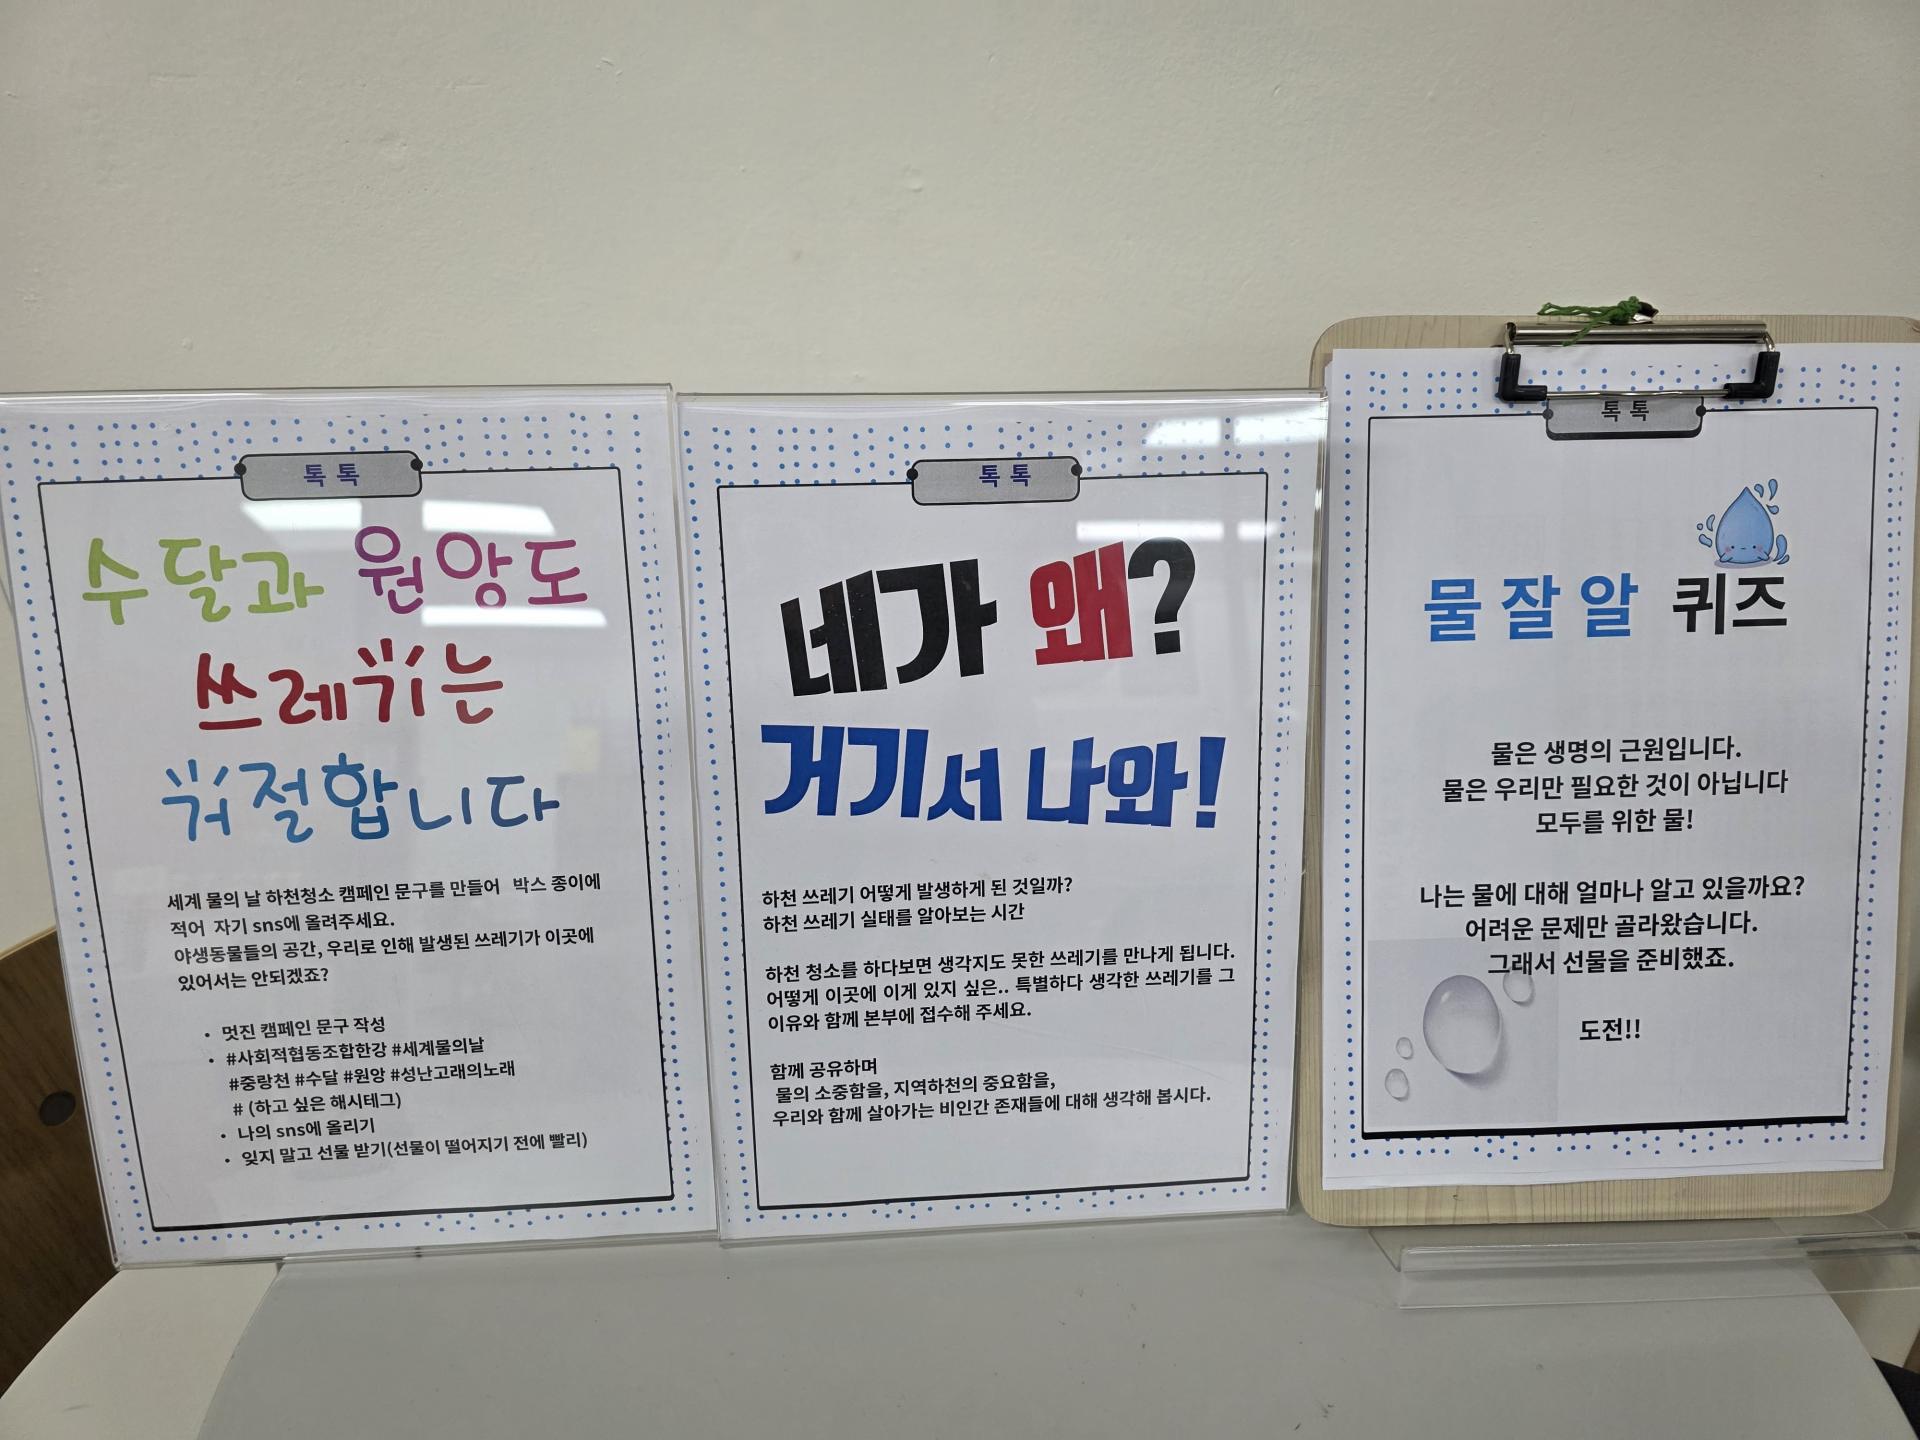 톡톡
수달과 원앙도
쓰레귀는
귀절합니다
세계 물의 날 하천청소 캠페인 문구를 만들어 박스 종이에
적어 자기 sns에 올려주세요.
야생동물들의 공간, 우리로 인해 발생된 쓰레기가 이곳에
있어서는 안되겠죠?
• 멋진 캠페인 문구 작성
• #사회적협동조합한강 #세계물의날
#중랑천 #수달 #원앙 #성난고래의노래
# (하고 싶은 해시테그)
• 나의 sns에 올리기
• 잊지 말고 선물 받기(선물이 떨어지기 전에 빨리)
톡톡
네가 왜?
거기서 나와!
하천 쓰레기 어떻게 발생하게 된 것일까?
하천 쓰레기 실태를 알아보는 시간
하천 청소를 하다보면 생각지도 못한 쓰레기를 만나게 됩니다.
어떻게 이곳에 이게 있지 싶은.. 특별하다 생각한 쓰레기를 그
이유와 함께 본부에 접수해 주세요.
함께 공유하며
물의 소중함을, 지역하천의 중요함을,
우리와 함께 살아가는 비인간 존재들에 대해 생각해 봅시다.
톡톡
물잘알 퀴즈
물은 생명의 근원입니다.
물은 우리만 필요한 것이 아닙니다
모두를 위한 물!
나는 물에 대해 얼마나 알고 있을까요?
어려운 문제만 골라왔습니다.
그래서 선물을 준비했죠.
도전!!